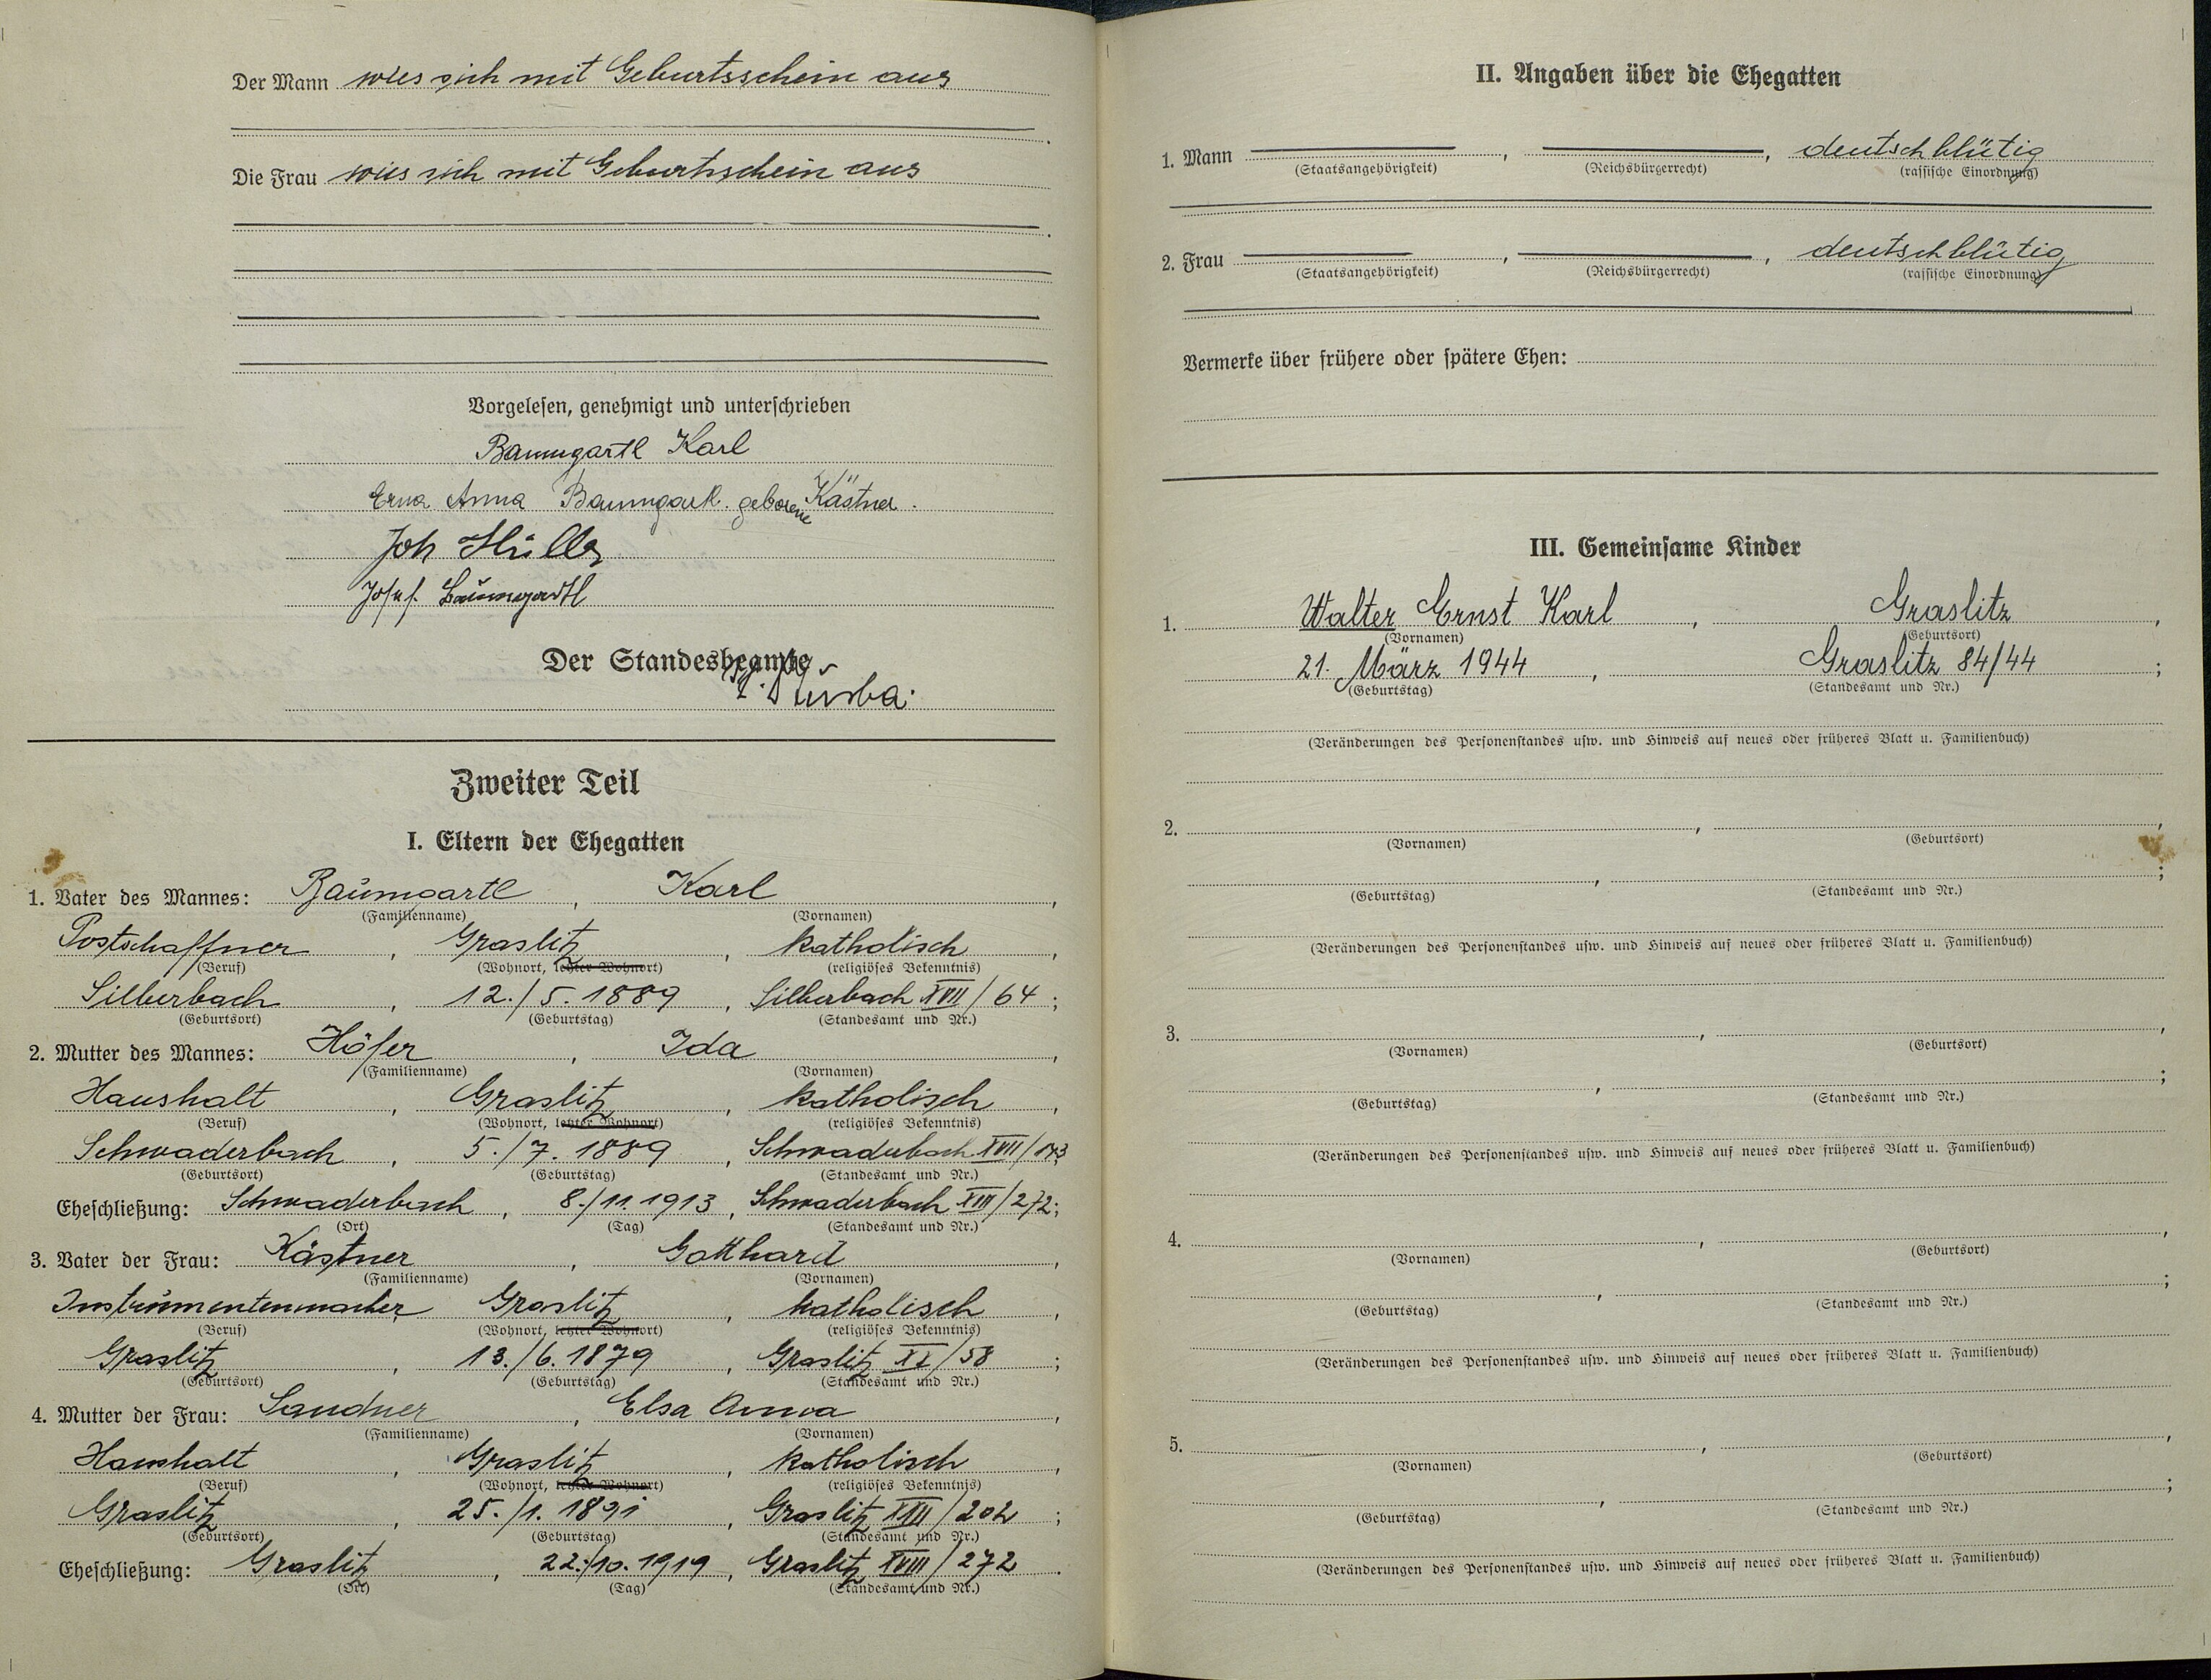 Der Mann wies sich mit Geburtsschein aus
Die Frau wies sich mit Geburtsschein aus
Vorgelesen, genehmigt und unterschrieben
Baumgartl Karl
Erna Anna Baumgartl. geborene Kästner.
Joh
Josef Baumgartl
Der Standesbeamte
Zweiter Teil
I. Eltern der Ehegatten
1. Vater des Mannes: Baumgartl, Karl,
(Familienname) (Vornamen)
Postschaffner, Graslitz, katholisch,
(Beruf) (Wohnort, letzter Wohnort) (religiöses Bekenntnis)
Silberbach, 12./5. 1889, Silberbach XVII/64;
(Geburtsort) (Geburtstag) (Standesamt und Nr.)
2. Mutter des Mannes: Höfer, Ida,
(Familienname) (Vornamen)
Haushalt, Graslitz, katholisch,
(Beruf) (Wohnort, letzter Wohnort) (religiöses Bekenntnis)
Schwaderbach, 5./7. 1889, Schwaderbach XVII/
(Geburtsort) (Geburtstag) (Standesamt und Nr.)
Eheschließung: Schwaderbach, 8./11. 1913, Schwaderbach XIII/272;
(Ort) (Tag) (Standesamt und Nr.)
3. Vater der Frau: Kästner, Gotthard,
(Familienname) (Vornamen)
Instrumentenmacher, Graslitz, katholisch,
(Beruf) (Wohnort, letzter Wohnort) (religiöses Bekenntnis)
Graslitz, 13./6. 1879, Graslitz XI/58;
(Geburtsort) (Geburtstag) (Standesamt und Nr.)
4. Mutter der Frau: Sandner, Elsa Anna,
(Familienname) (Vornamen)
Haushalt, Graslitz, katholisch,
(Beruf) (Wohnort, letzter Wohnort) (religiöses Bekenntnis)
Graslitz, 25./1. 1891, Graslitz XIII/202;
(Geburtsort) (Geburtstag) (Standesamt und Nr.)
Eheschließung: Graslitz, 22./10. 1919, Graslitz XVIII/272.
(Ort) (Tag) (Standesamt und Nr.)
II. Angaben über die Ehegatten
1. Mann , , deutschblütig
(Staatsangehörigkeit) (Reichsbürgerrecht) (rassische Einordnung)
2. Frau , , deutschblütig
(Staatsangehörigkeit) (Reichsbürgerrecht) (rassische Einordnung)
Vermerke über frühere oder spätere Ehen:
III. Gemeinsame Kinder
1. Walter Ernst Karl, Graslitz,
(Vornamen) (Geburtsort)
21. März 1944, Graslitz 84/44;
(Geburtstag) (Standesamt und Nr.)
(Veränderungen des Personenstandes usw. und Hinweis auf neues oder früheres Blatt u. Familienbuch)
2. , ,
(Vornamen) (Geburtsort)
, ;
(Geburtstag) (Standesamt und Nr.)
(Veränderungen des Personenstandes usw. und Hinweis auf neues oder früheres Blatt u. Familienbuch)
3. , ,
(Vornamen) (Geburtsort)
, ;
(Geburtstag) (Standesamt und Nr.)
(Veränderungen des Personenstandes usw. und Hinweis auf neues oder früheres Blatt u. Familienbuch)
4. , ,
(Vornamen) (Geburtsort)
, ;
(Geburtstag) (Standesamt und Nr.)
(Veränderungen des Personenstandes usw. und Hinweis auf neues oder früheres Blatt u. Familienbuch)
5. , ,
(Vornamen) (Geburtsort)
, ;
(Geburtstag) (Standesamt und Nr.)
(Veränderungen des Personenstandes usw. und Hinweis auf neues oder früheres Blatt u. Familienbuch)